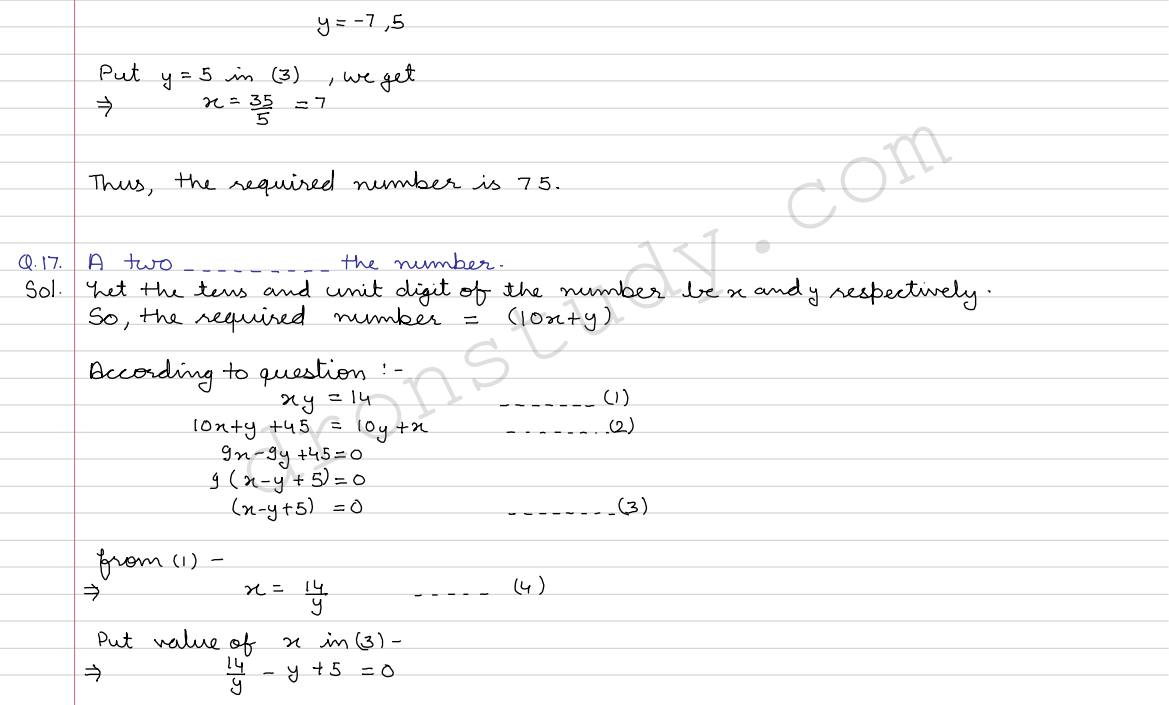 y = -7, 5
Put y = 5 in (3), we get
⇒ x = 35/5 = 7
Thus, the required number is 75.
Q.17. A two _ _ _ _ _ _ _ _ _ the number.
Sol. Let the tens and unit digit of the number be x and y respectively.
So, the required number = (10x+y)
According to question :-
xy = 14 _ _ _ _ _ _ _ (1)
10x+y +45 = 10y+x - - - - - - - - (2)
9x-9y+45=0
9(x-y+5)=0
(x-y+5) = 0 - - - - - - - - (3)
from (1) -
⇒ x = 14/y - - - - - (4)
Put value of x in (3) -
⇒ 14/y - y + 5 = 0
dronstudy.com